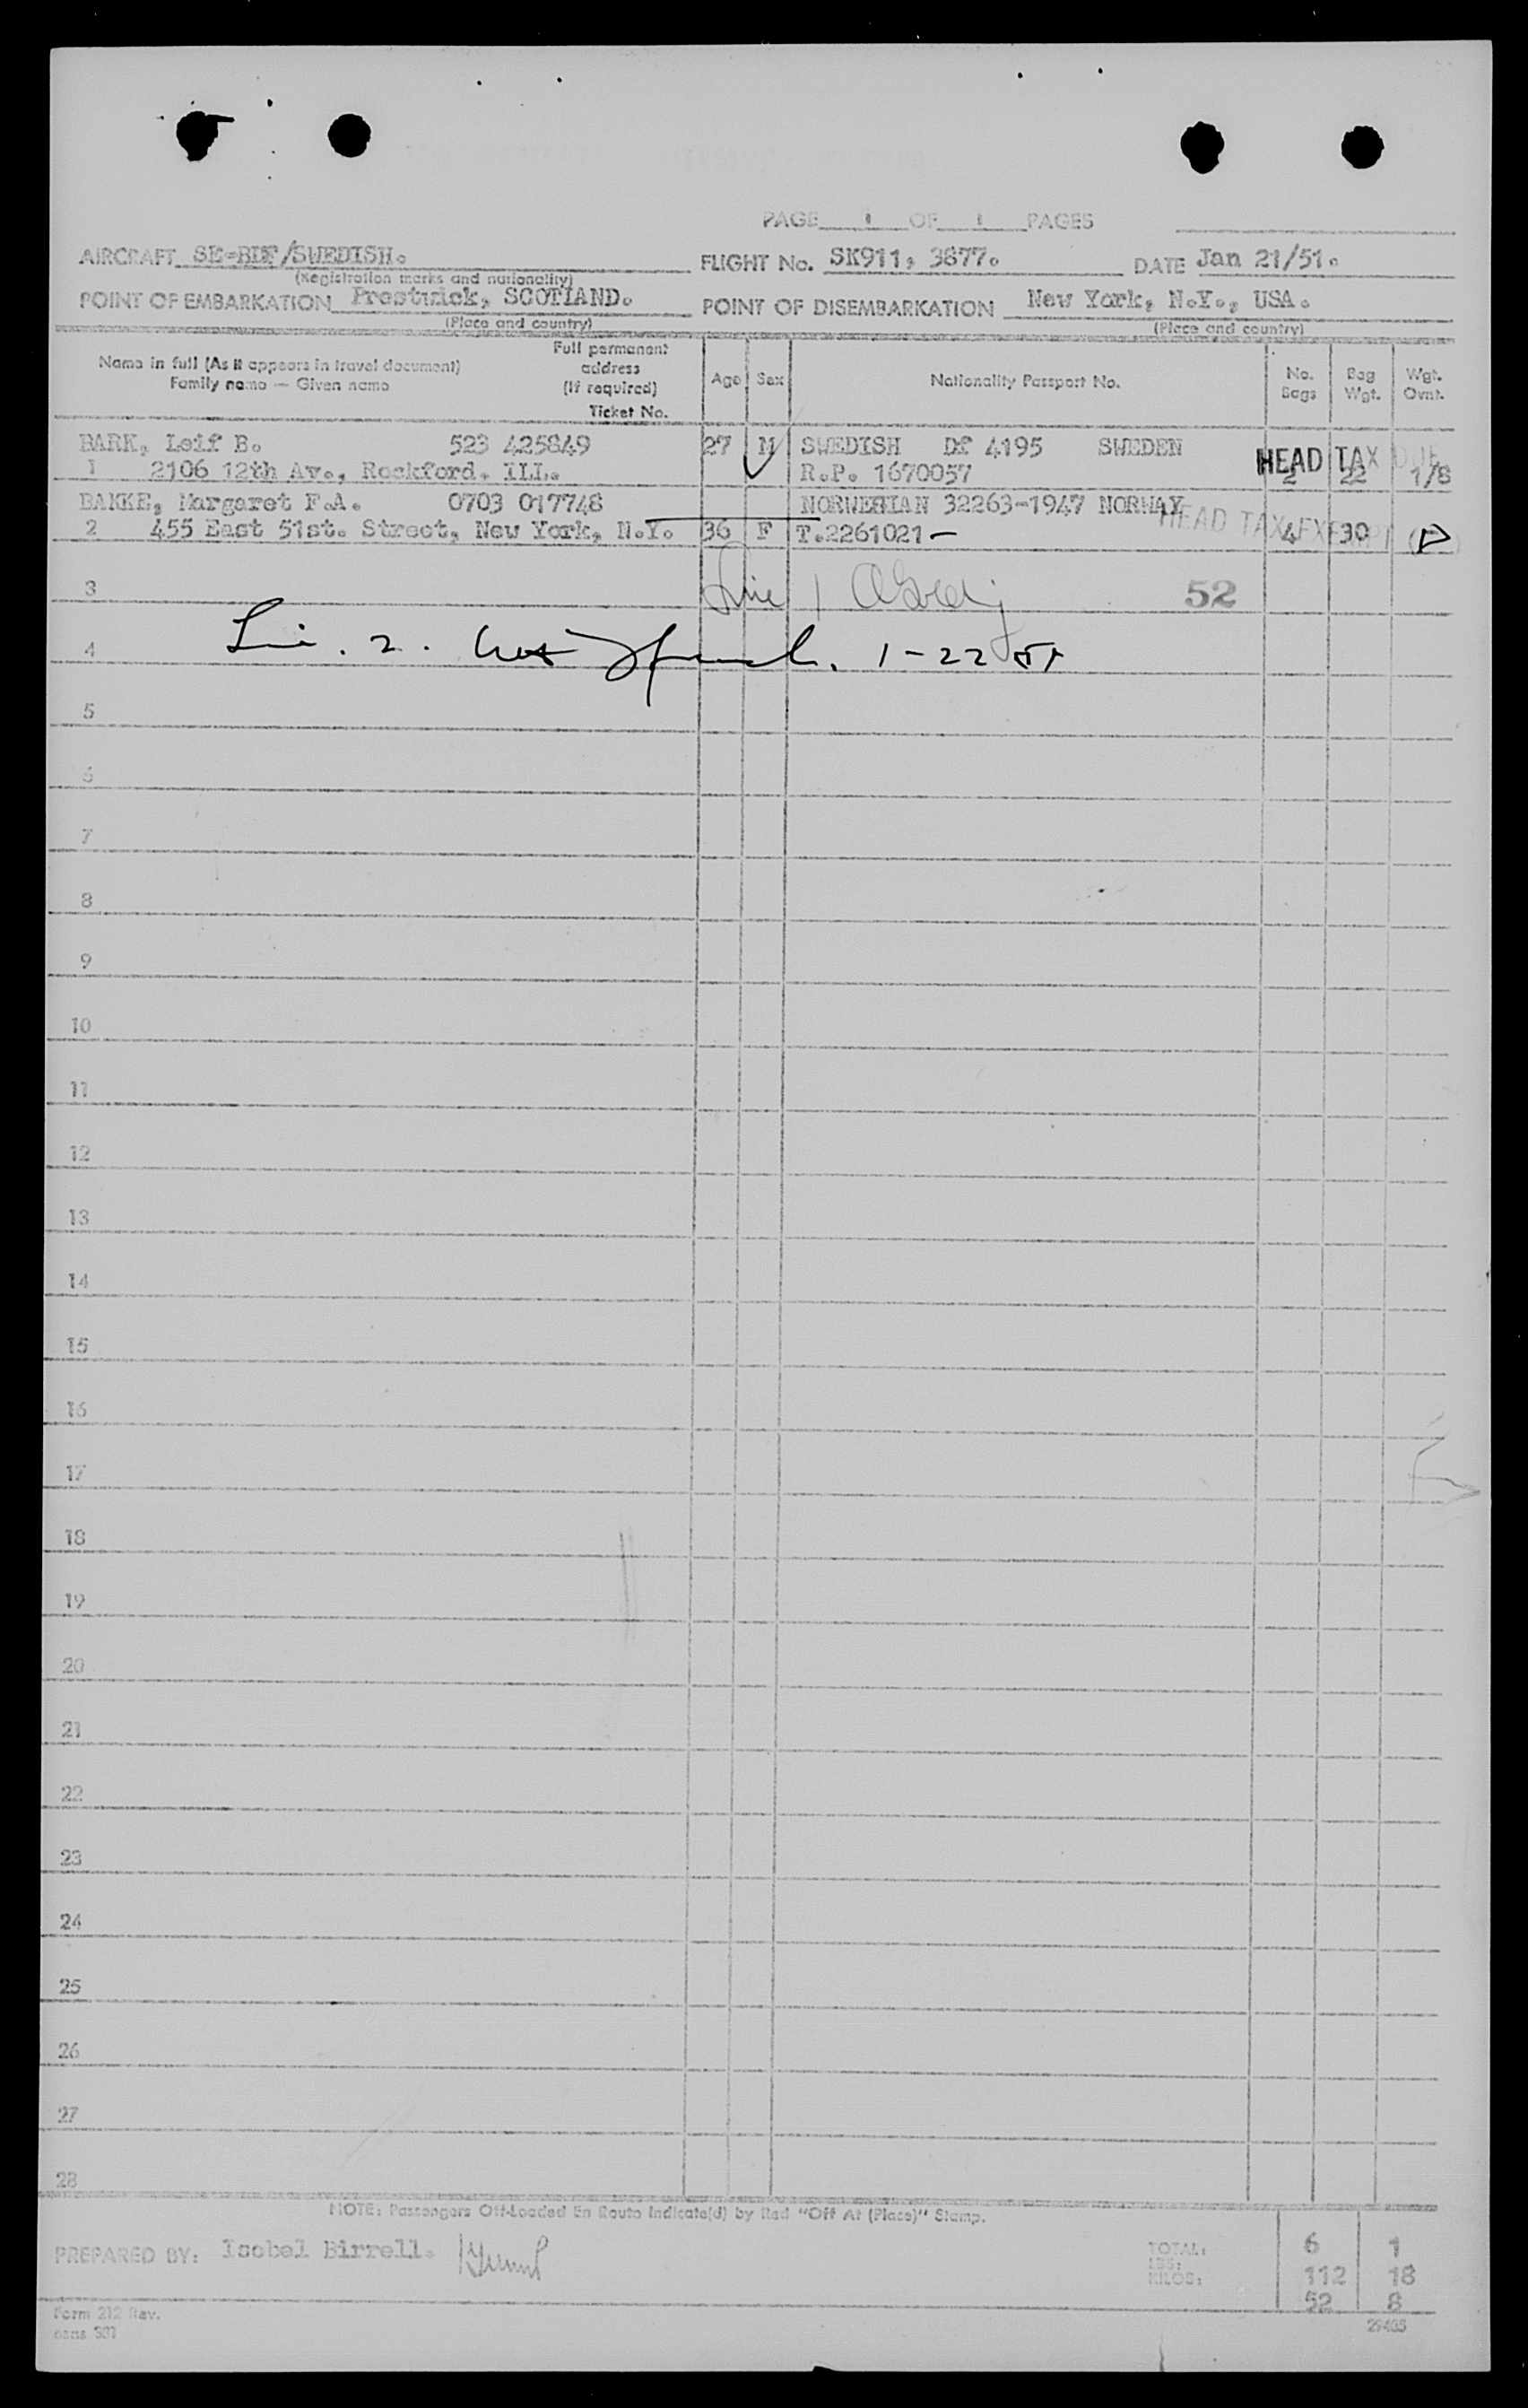 PAGE 1 OF 1 PAGES
AIRCRAFT SE-BDF/SWEDISH. FLIGHT No. SK911, 3877. DATE Jan 21/51.
(Registration marks and nationality)
POINT OF EMBARKATION Prestwick, SCOTLAND. POINT OF DISEMBARKATION New York, N.Y., USA.
(Place and country) (Place and country)
Name in full (As it appears in travel document) Family name — Given name Full permanent address (If required) Ticket No. Age Sex Nationality Passport No. No. Bags Bag Wgt. Wgt. Ovnt.
BARK, Leif B. 523 425849 27 M SWEDISH Df 4195 SWEDEN HEAD TAX DUE
1 2106 12th Av., Rockford. ILL. R.P. 1670057 2 22 1/8
BAKKE, Margaret F.A. 0703 017748 NORWEGIAN 32263-1947 NORWAY HEAD TAX EXEMPT
2 455 East 51st. Street, New York, N.Y. 36 F T.2261021- 4 30
3 Line 1 52
4 Li. 2. 1-22 51
5
6
7
8
9
10
11
12
13
14
15
16
17
18
19
20
21
22
23
24
25
26
27
28
NOTE: Passengers Off-Loaded En Route Indicate(d) by Red "Off At (Place)" Stamp.
PREPARED BY: Isobel Birrell. TOTAL: 6 1
LBS: 112 18
KILOS: 52 8
Form 212 Rev.